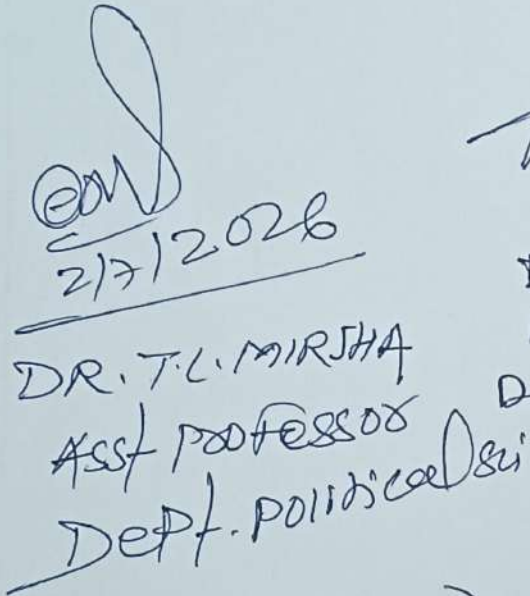 2/7/2026
DR. T.L. MIRSHA
Asst Professor
Dept. Political sci